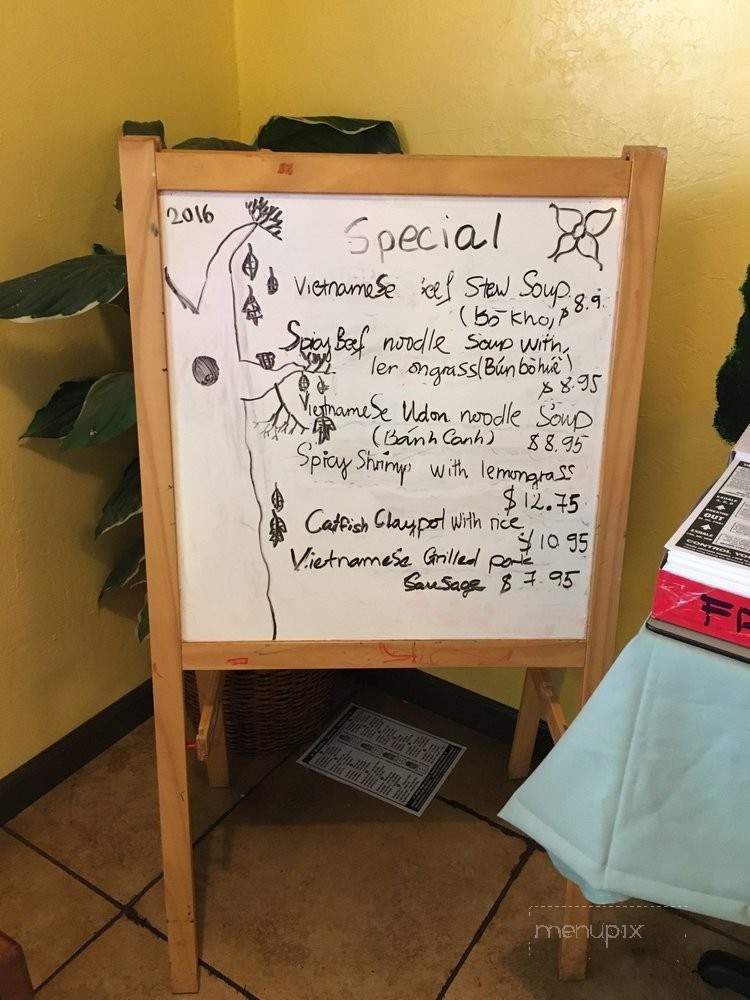 2016
Special
Vietnamese eef Stew Soup
(Bò Kho, $ 8.9
Spicy Beef noodle Soup with,
lem ongrass (Bún bò huê)
$ 8.95
Vietnamese Udon noodle Soup
(Bánh Canh) $8.95
Spicy Shrimp with lemongrass
$12.75
Catfish Claypot with rice
$10 95
Vietnamese Grilled pork
Sausage $ 7.95
OUT
CONTROL YOU
menupix